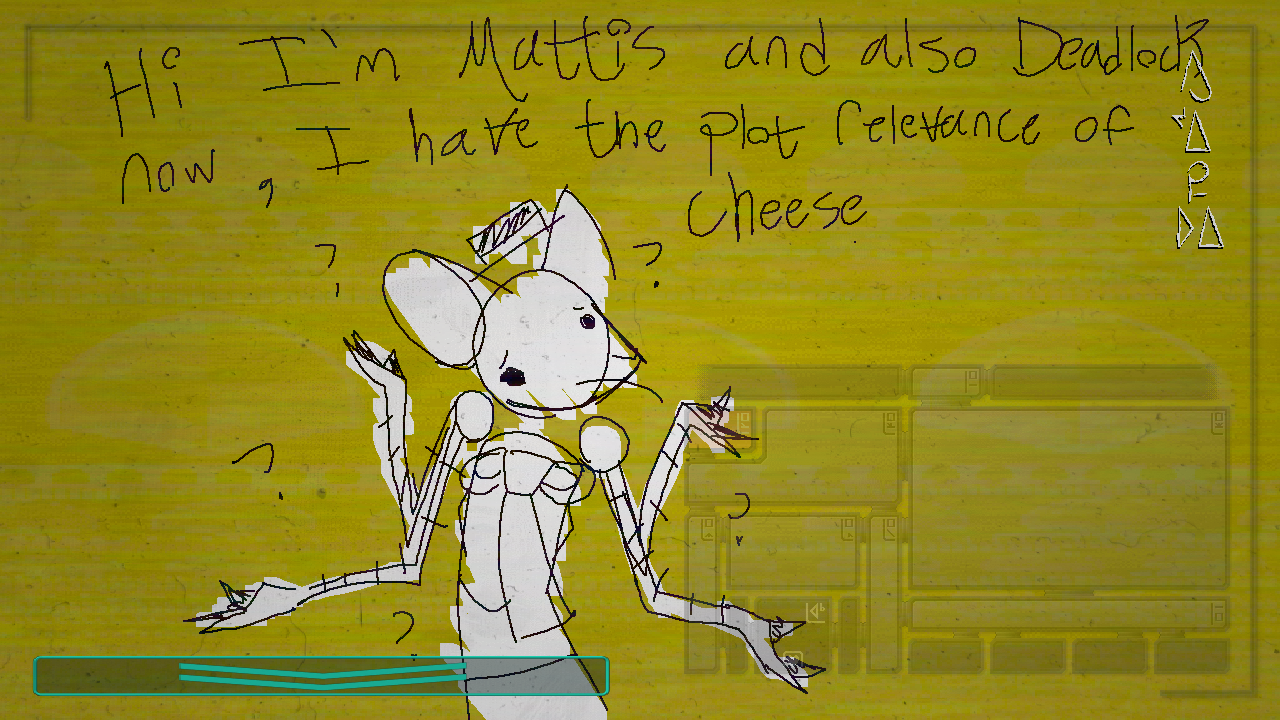 Hi I'm Mattis and also Deadlock
now, I have the plot relevance of
cheese
? ?
?
?
?